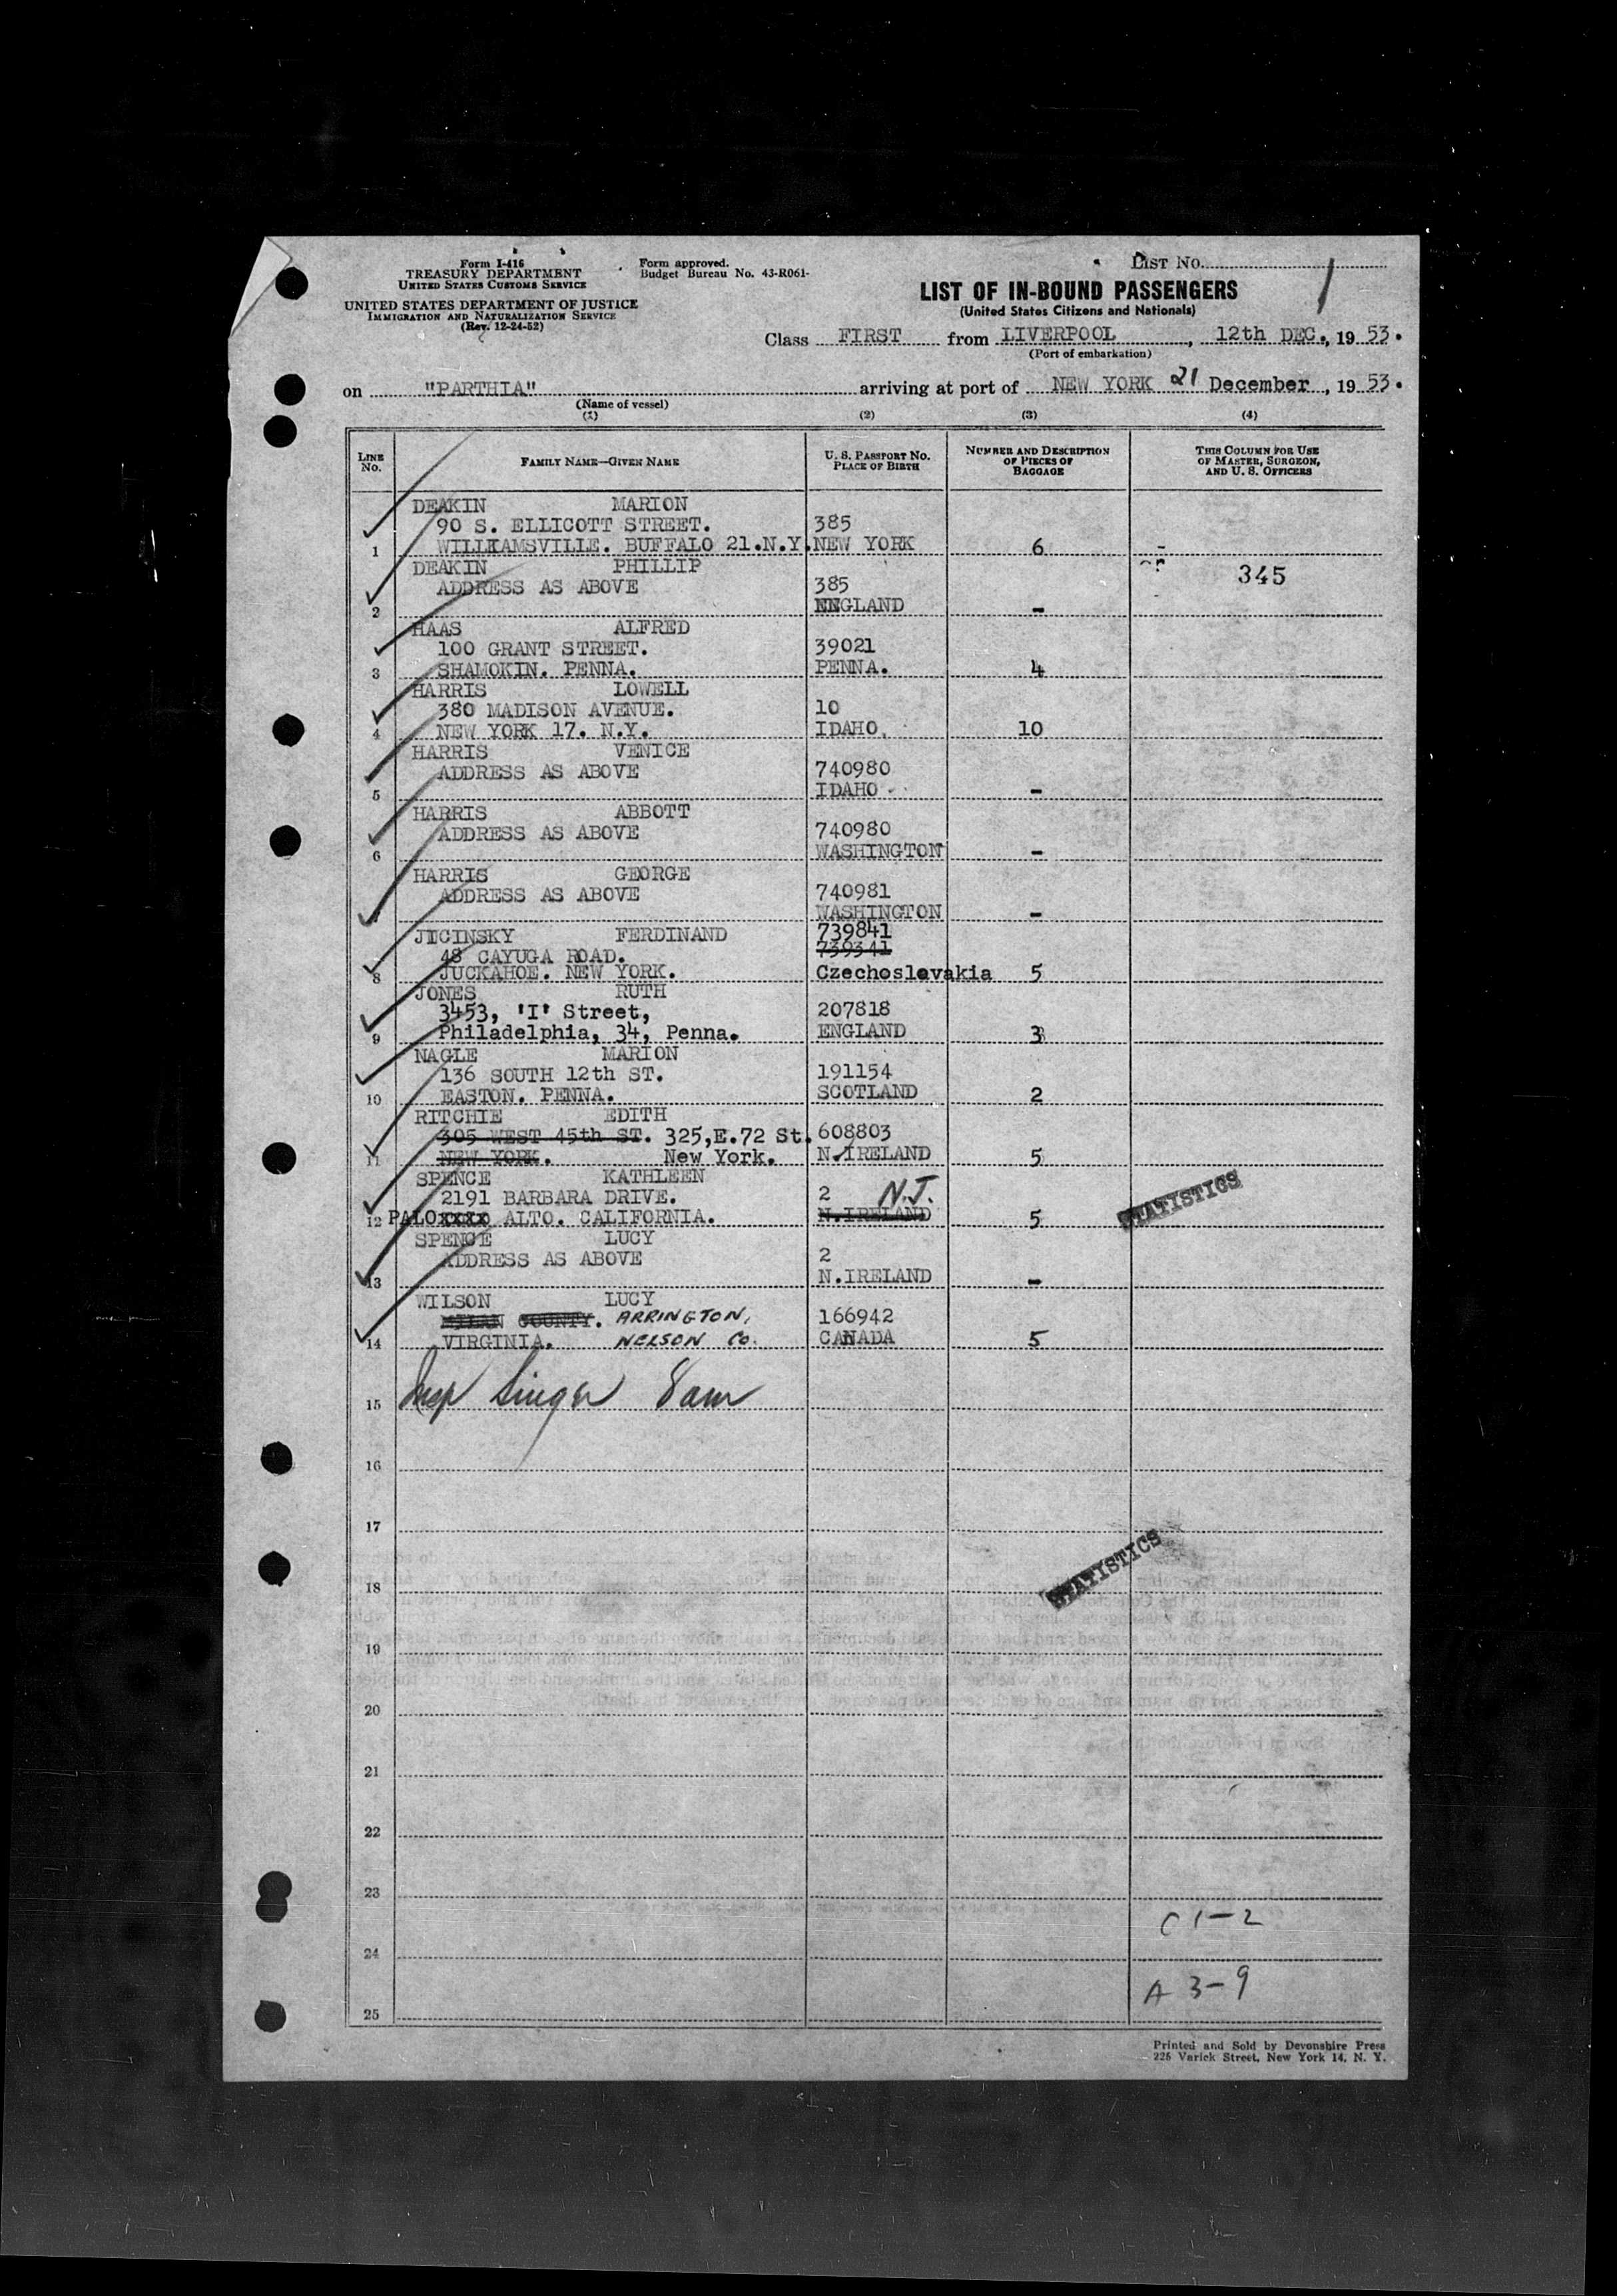 Form I-416
TREASURY DEPARTMENT
UNITED STATES CUSTOMS SERVICE
UNITED STATES DEPARTMENT OF JUSTICE
IMMIGRATION AND NATURALIZATION SERVICE
(Rev. 12-24-52)
Form approved.
Budget Bureau No. 43-R061-
LIST NO. 1
LIST OF IN-BOUND PASSENGERS
(United States Citizens and Nationals)
Class FIRST from LIVERPOOL, 12th DEC., 1953.
(Port of embarkation)
on "PARTHIA" arriving at port of NEW YORK 21 December, 1953.
(Name of vessel)
(1) (2) (3) (4)
LINE NO.
FAMILY NAME—GIVEN NAME
U. S. PASSPORT NO.
PLACE OF BIRTH
NUMBER AND DESCRIPTION
OF PIECES OF
BAGGAGE
THIS COLUMN FOR USE
OF MASTER, SURGEON,
AND U. S. OFFICERS
DEAKIN MARION
90 S. ELLICOTT STREET. 385
1 WILLIAMSVILLE. BUFFALO 21.N.Y. NEW YORK 6 -
DEAKIN PHILLIP
345
ADDRESS AS ABOVE 385
2 ENGLAND -
HAAS ALFRED
100 GRANT STREET. 39021
3 SHAMOKIN. PENNA. PENNA. 4
HARRIS LOWELL
380 MADISON AVENUE. 10
4 NEW YORK 17. N.Y. IDAHO. 10
HARRIS VENICE
ADDRESS AS ABOVE 740980
5 IDAHO -
HARRIS ABBOTT
ADDRESS AS ABOVE 740980
6 WASHINGTON -
HARRIS GEORGE
ADDRESS AS ABOVE 740981
7 WASHINGTON -
JICINSKY FERDINAND 739841
48 CAYUGA ROAD. 739341
8 JUCKAHOE. NEW YORK. Czechoslovakia 5
JONES RUTH
3453, 'I' Street, 207818
9 Philadelphia, 34, Penna. ENGLAND 3
NAGLE MARION
136 SOUTH 12th ST. 191154
10 EASTON. PENNA. SCOTLAND 2
RITCHIE EDITH
305 WEST 45th ST. 325,E.72 St. 608803
11 NEW YORK. New York. N.IRELAND 5
SPENCE KATHLEEN
2191 BARBARA DRIVE. 2 N.J.
12 PALOxxxx ALTO. CALIFORNIA. N.IRELAND 5
STATISTICS
SPENCE LUCY
ADDRESS AS ABOVE 2
13 N.IRELAND -
WILSON LUCY
COUNTY. ARRINGTON, 166942
14 VIRGINIA. NELSON Co. CANADA 5
15 Insp Singer 8am
16
17
STATISTICS
18
19
20
21
22
23
C 1-2
24
A 3-9
25
Printed and Sold by Devonshire Press
225 Varick Street, New York 14, N. Y.